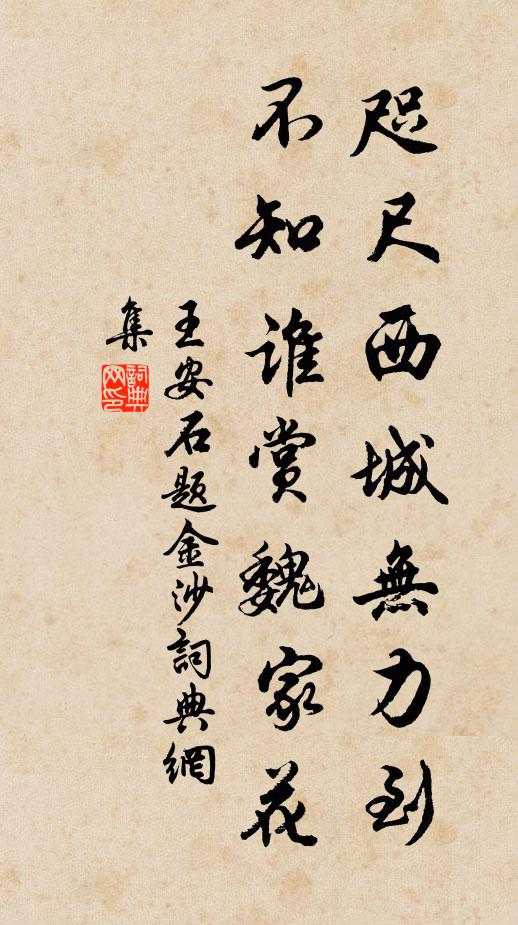 咫尺西城無力到
不知誰賞魏家花
王安石題金沙詞典網
集
詞典
网印